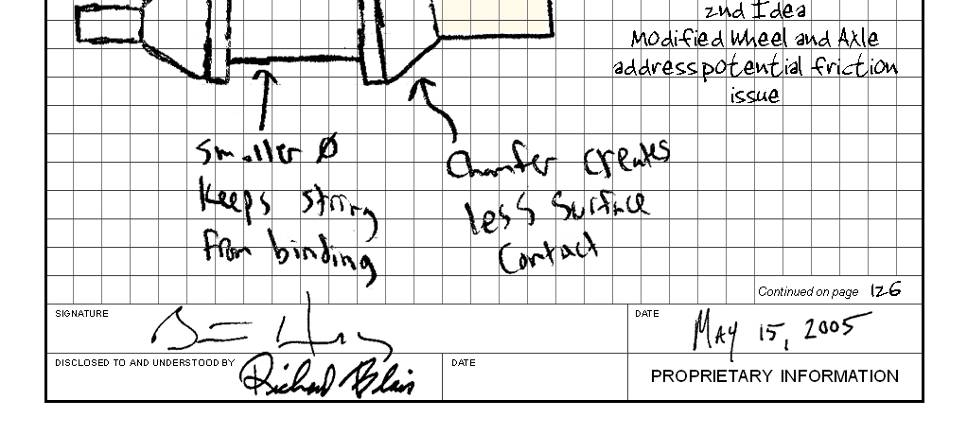 2nd Idea
Modified Wheel and Axle
address potential friction
issue
Smaller Ø
Keeps string
from binding
Chamfer creates
less surface
contact
Continued on page 126
SIGNATURE
DATE
May 15, 2005
DISCLOSED TO AND UNDERSTOOD BY Richard Blais
DATE
PROPRIETARY INFORMATION